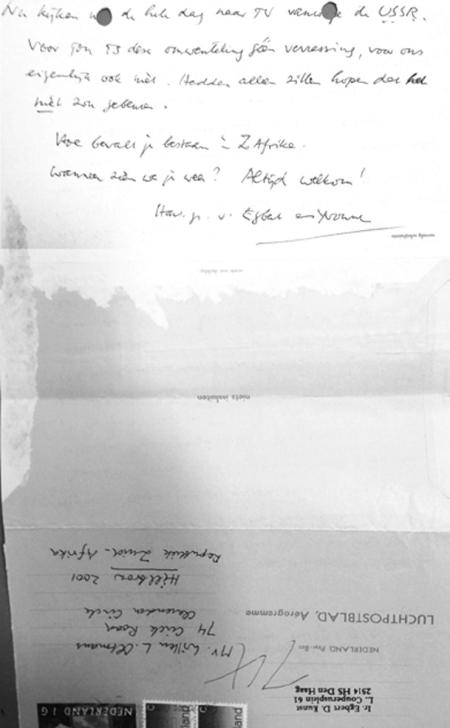 Nu kijken we de hele dag naar TV vanwege de USSR.
Voor jou is deze omwenteling géén verrassing, voor ons
eigenlijk ook niet. Hadden alleen zitten hopen dat het
niet zou gebeuren.
Hoe bevalt je bestaan in Z Afrika.
Wanneer zien we je weer? Altijd welkom!
Hart. gr. v. Egbert en Yvonne
niets insluiten
Ir Egbert D. Kunst
L. Couperusplein 61
2514 HS Den Haag
NEDERLAND, Pays-Bas
LUCHTPOSTBLAD, Aérogramme
NEDERLAND
Mr. Willem L. Oltmans
74 Creek Road
Clarendon Circle
Hillbrow 2001
Republiek Zuid-Afrika